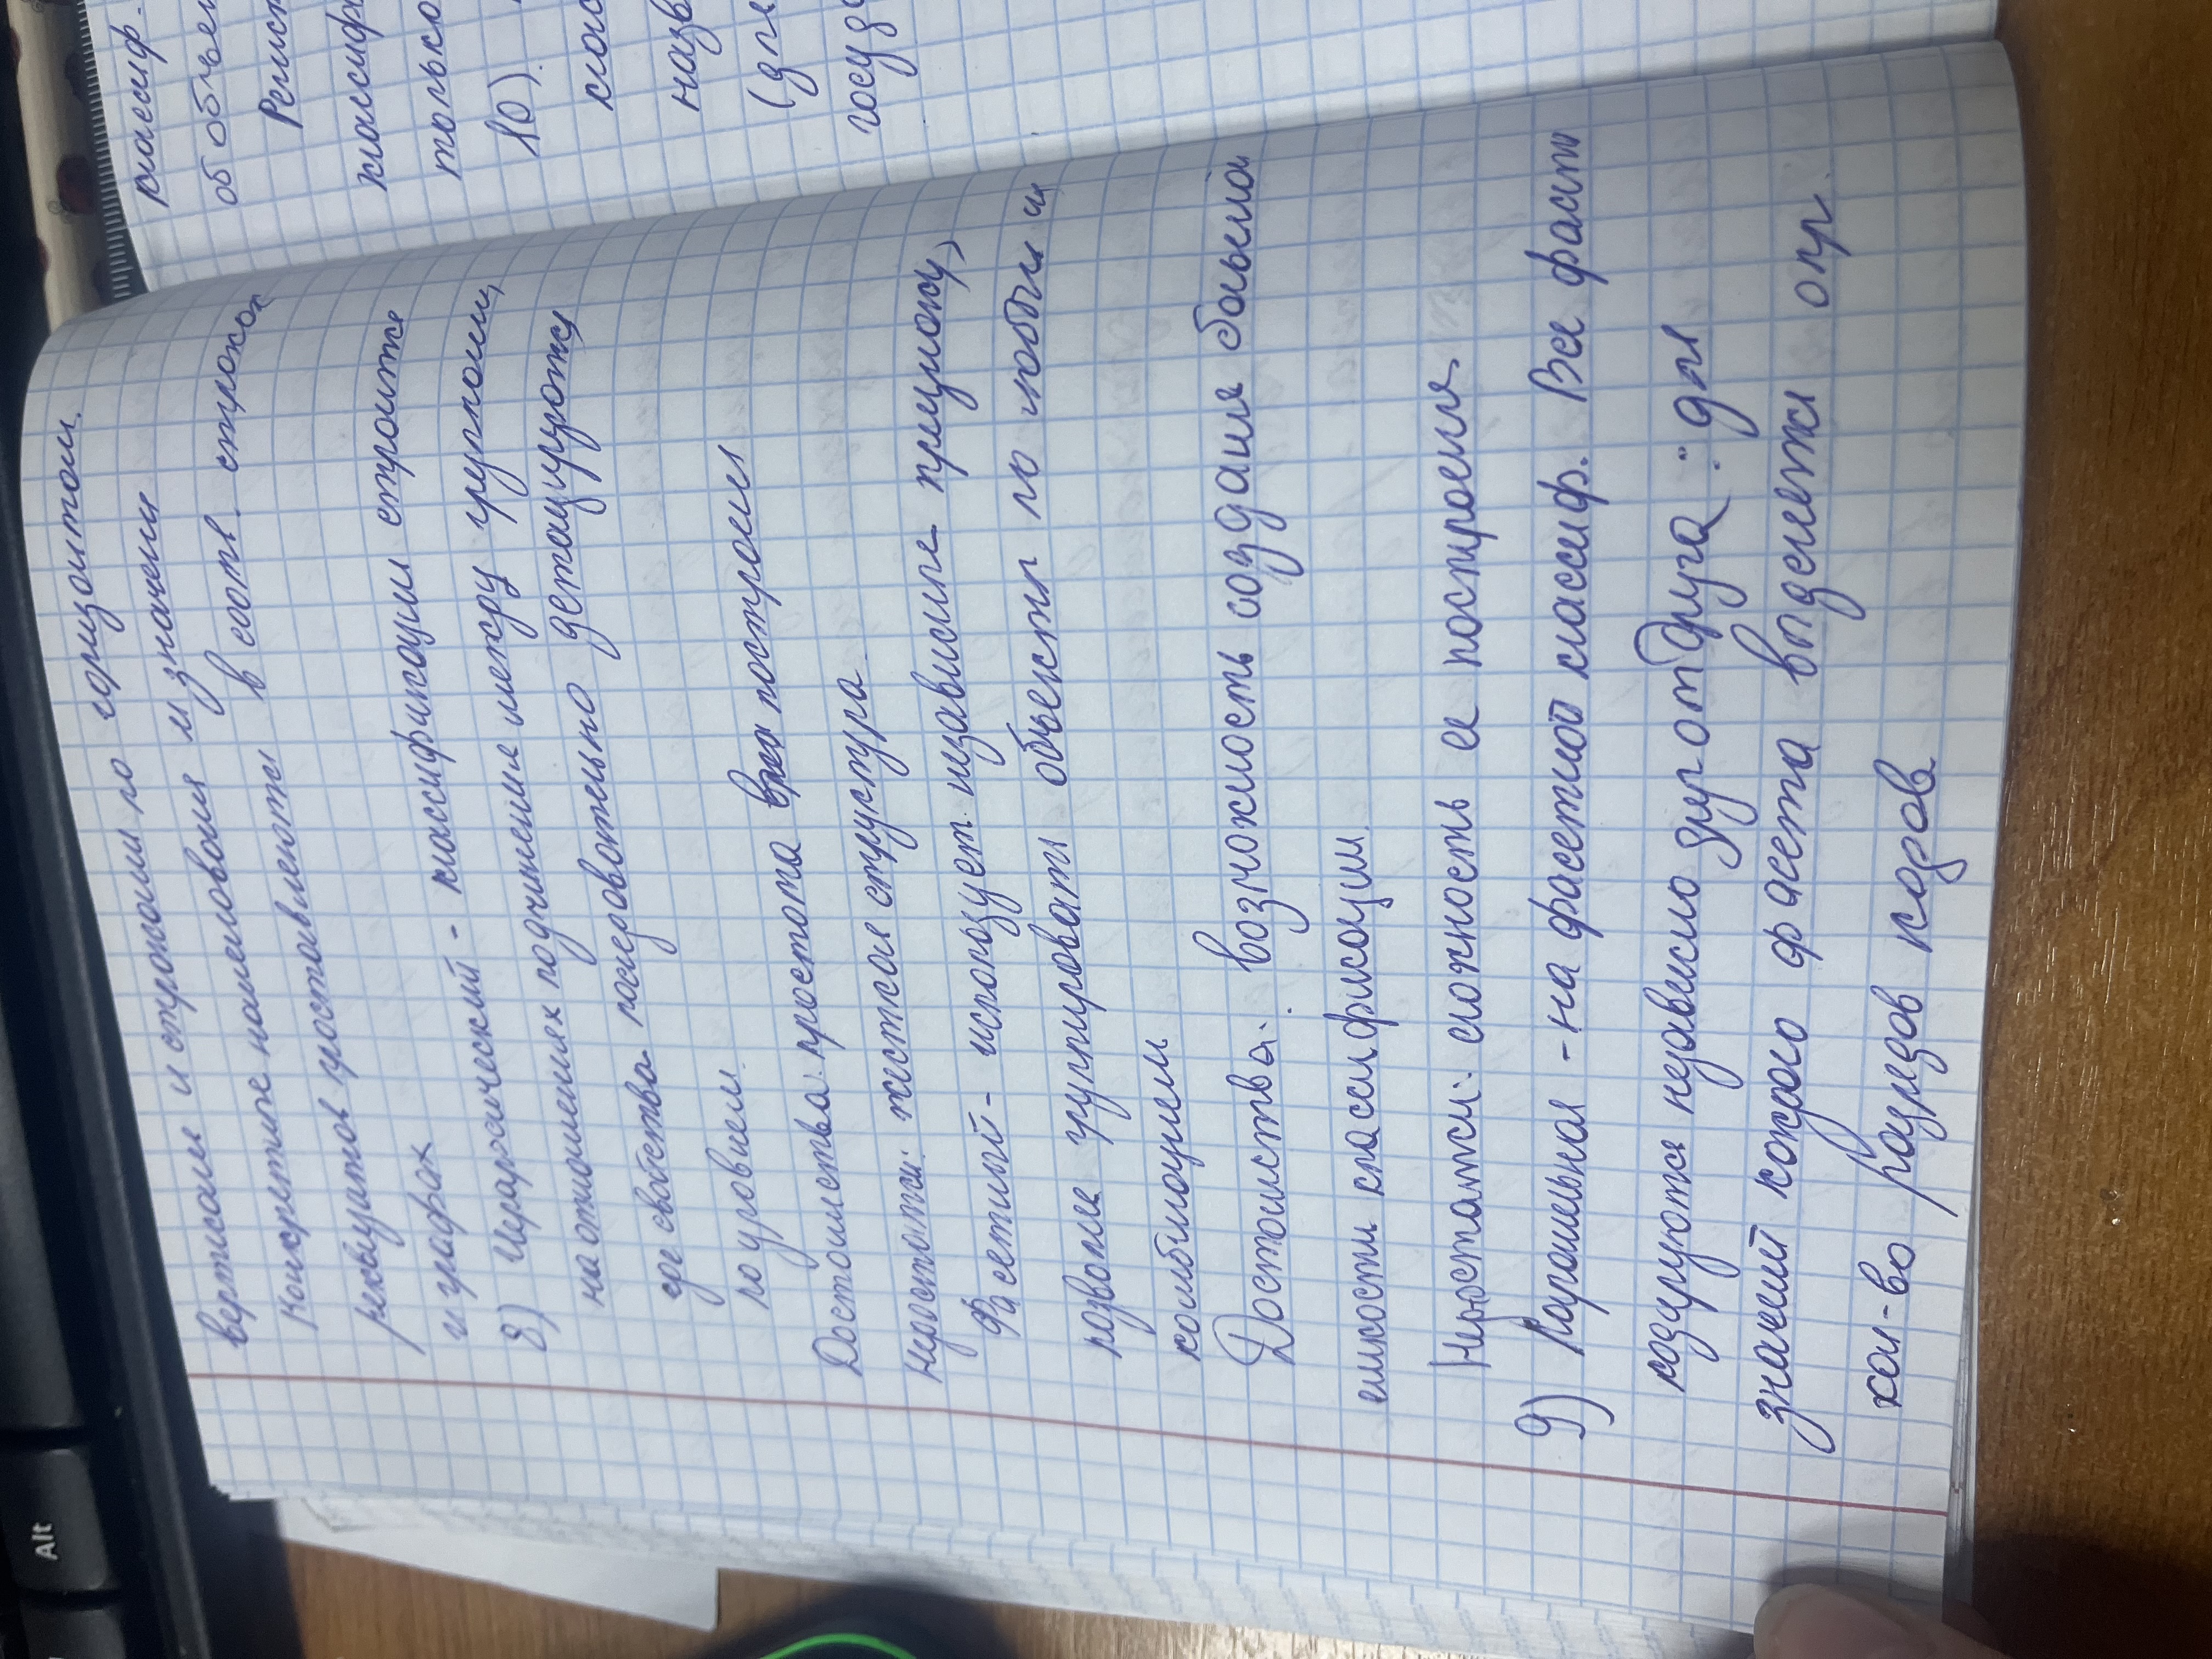 вертикале и строками по горизонтали.
Конкретные наименования и значени
реквизитов проставляются в соотв. строках
и графах
8) Иерархический - классификации строитсе
на отношениях подчинения между группами,
где свойства последовательно детализируютсу
по уровнем.
Достоинства: простота построенил
Недостатки: жесткая струстура.
Фасетный - использует независиме прищнаки,
позволяе группировать объекты по любым и
комбинациеи
Достоинства: возможность создание больша
емкости класси фикации
Недостатки: сложность ее построения.
9) Параллельная - на фасетной классиф. Все фасты
кодируются независимо друг от друга: для
значений каждого фасета выделяется опр.
кол-во разрядов кодов
классиф.
обобъе
Регист
классифи
только
10).
клас
назв
(для
госуд